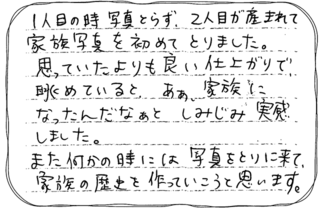 1人目の時写真とらず、2人目が産まれて
家族写真を初めてとりました。
思っていたよりも良い仕上がりで、
眺めていると、ああ、家族に
なったんだなぁと しみじみ 実感
しました。
また何かの時には 写真をとりに来て、
家族の歴史を作っていこうと思います。